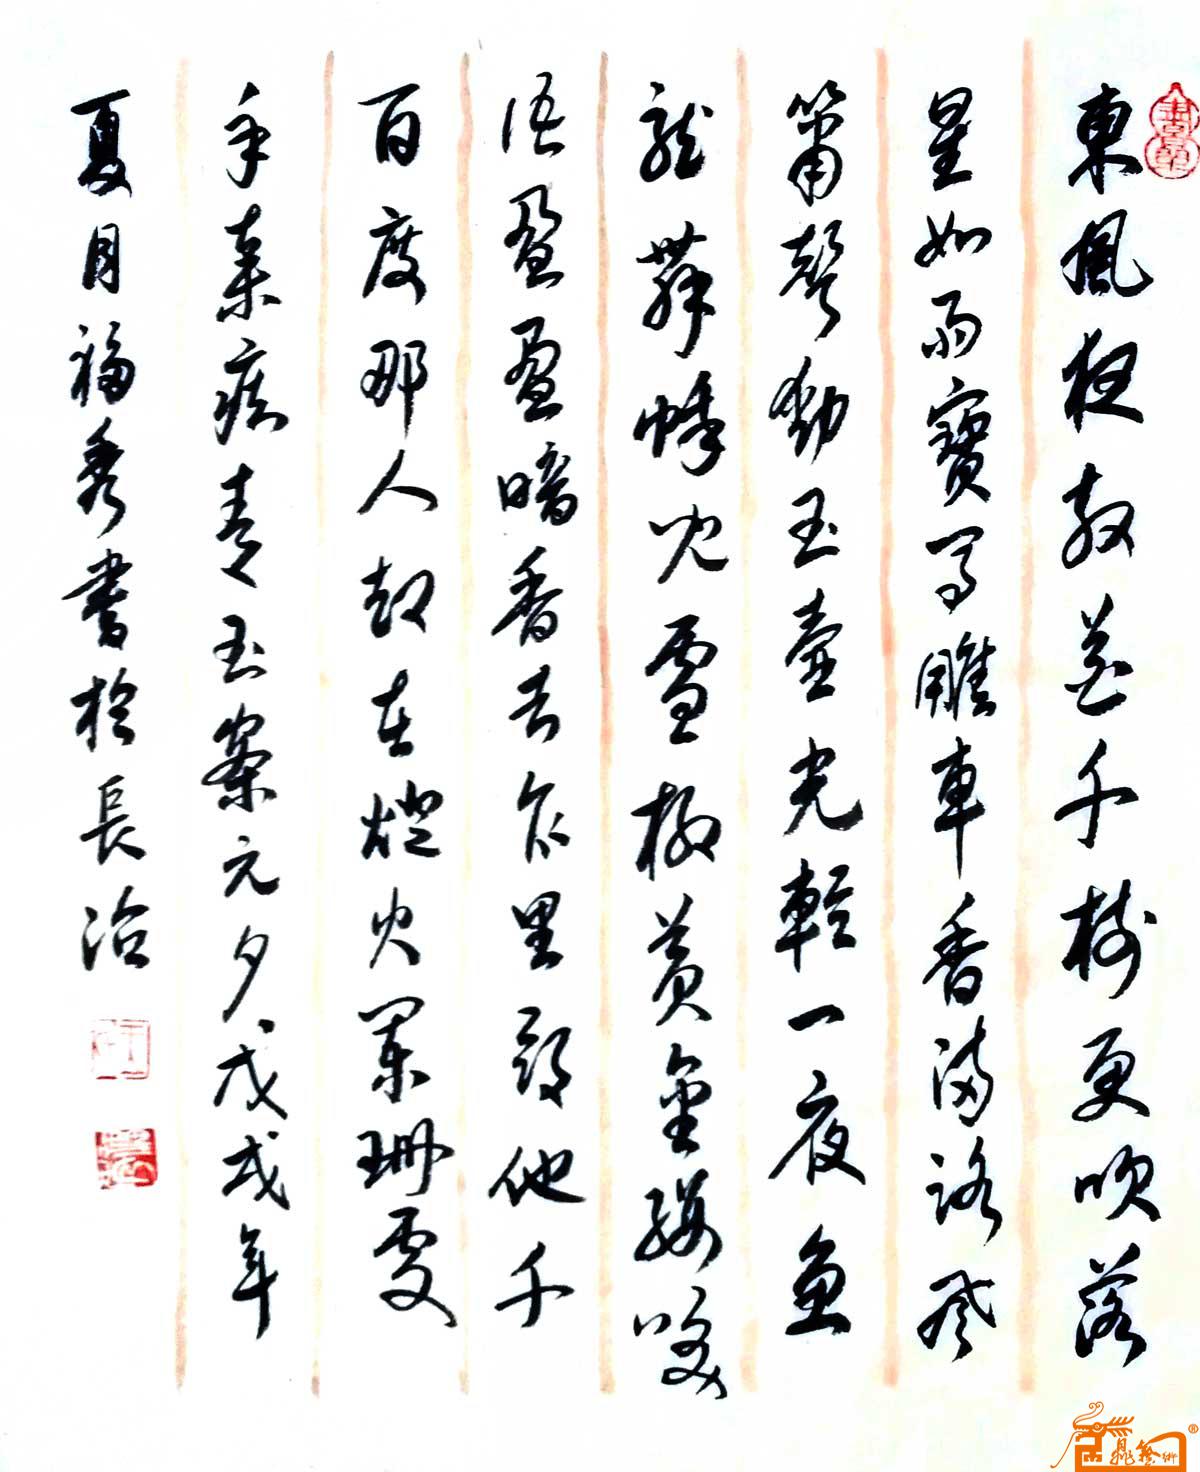 東風夜放花千樹更吹落
星如雨寶馬雕車香滿路鳳
簫聲動玉壺光轉一夜魚
龍舞蛾兒雪柳黃金縷咲
語盈盈暗香去众里尋他千
百度那人却在燈火闌珊處
辛棄疾青玉案元夕戊戌年
夏月福秀書於長治